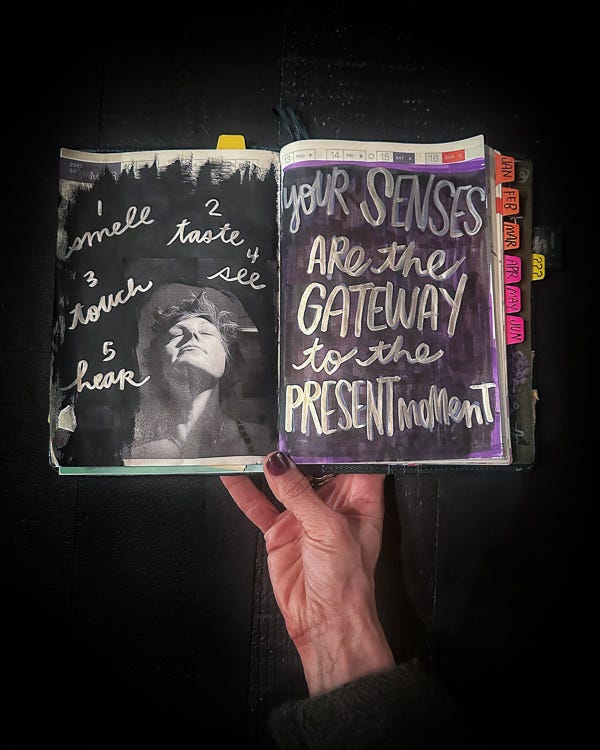 1
smell
2
taste
3
touch
4
see
5
hear
13 THU
14 FRI
15 SAT
16 SUN
YOUR SENSES
ARE the
GATEWAY
to the
PRESENT moMenT
JAN
FEB
MAR
APR
MAY
JUN
???